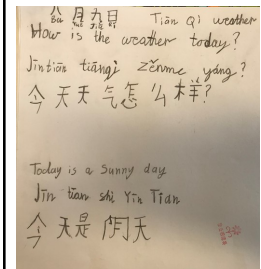 八月九日 Tiān Qì weather
bā yuè jiǔ rì
How is the weather today?
Jīntiān tiānqì zěnme yáng?
今天天气怎么样?
Today is a Sunny day
Jīn tiān shì Yīn Tiān
今天是阴天